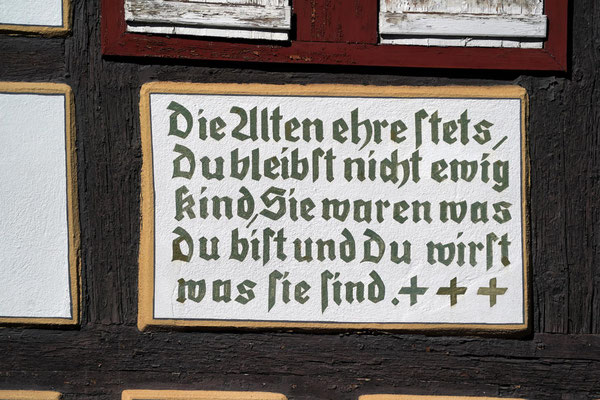 Die Alten ehre ſtets,
Du bleibſt nicht ewig
kind, Sie waren was
Du biſt und Du wirſt
was ſie ſind. + + +